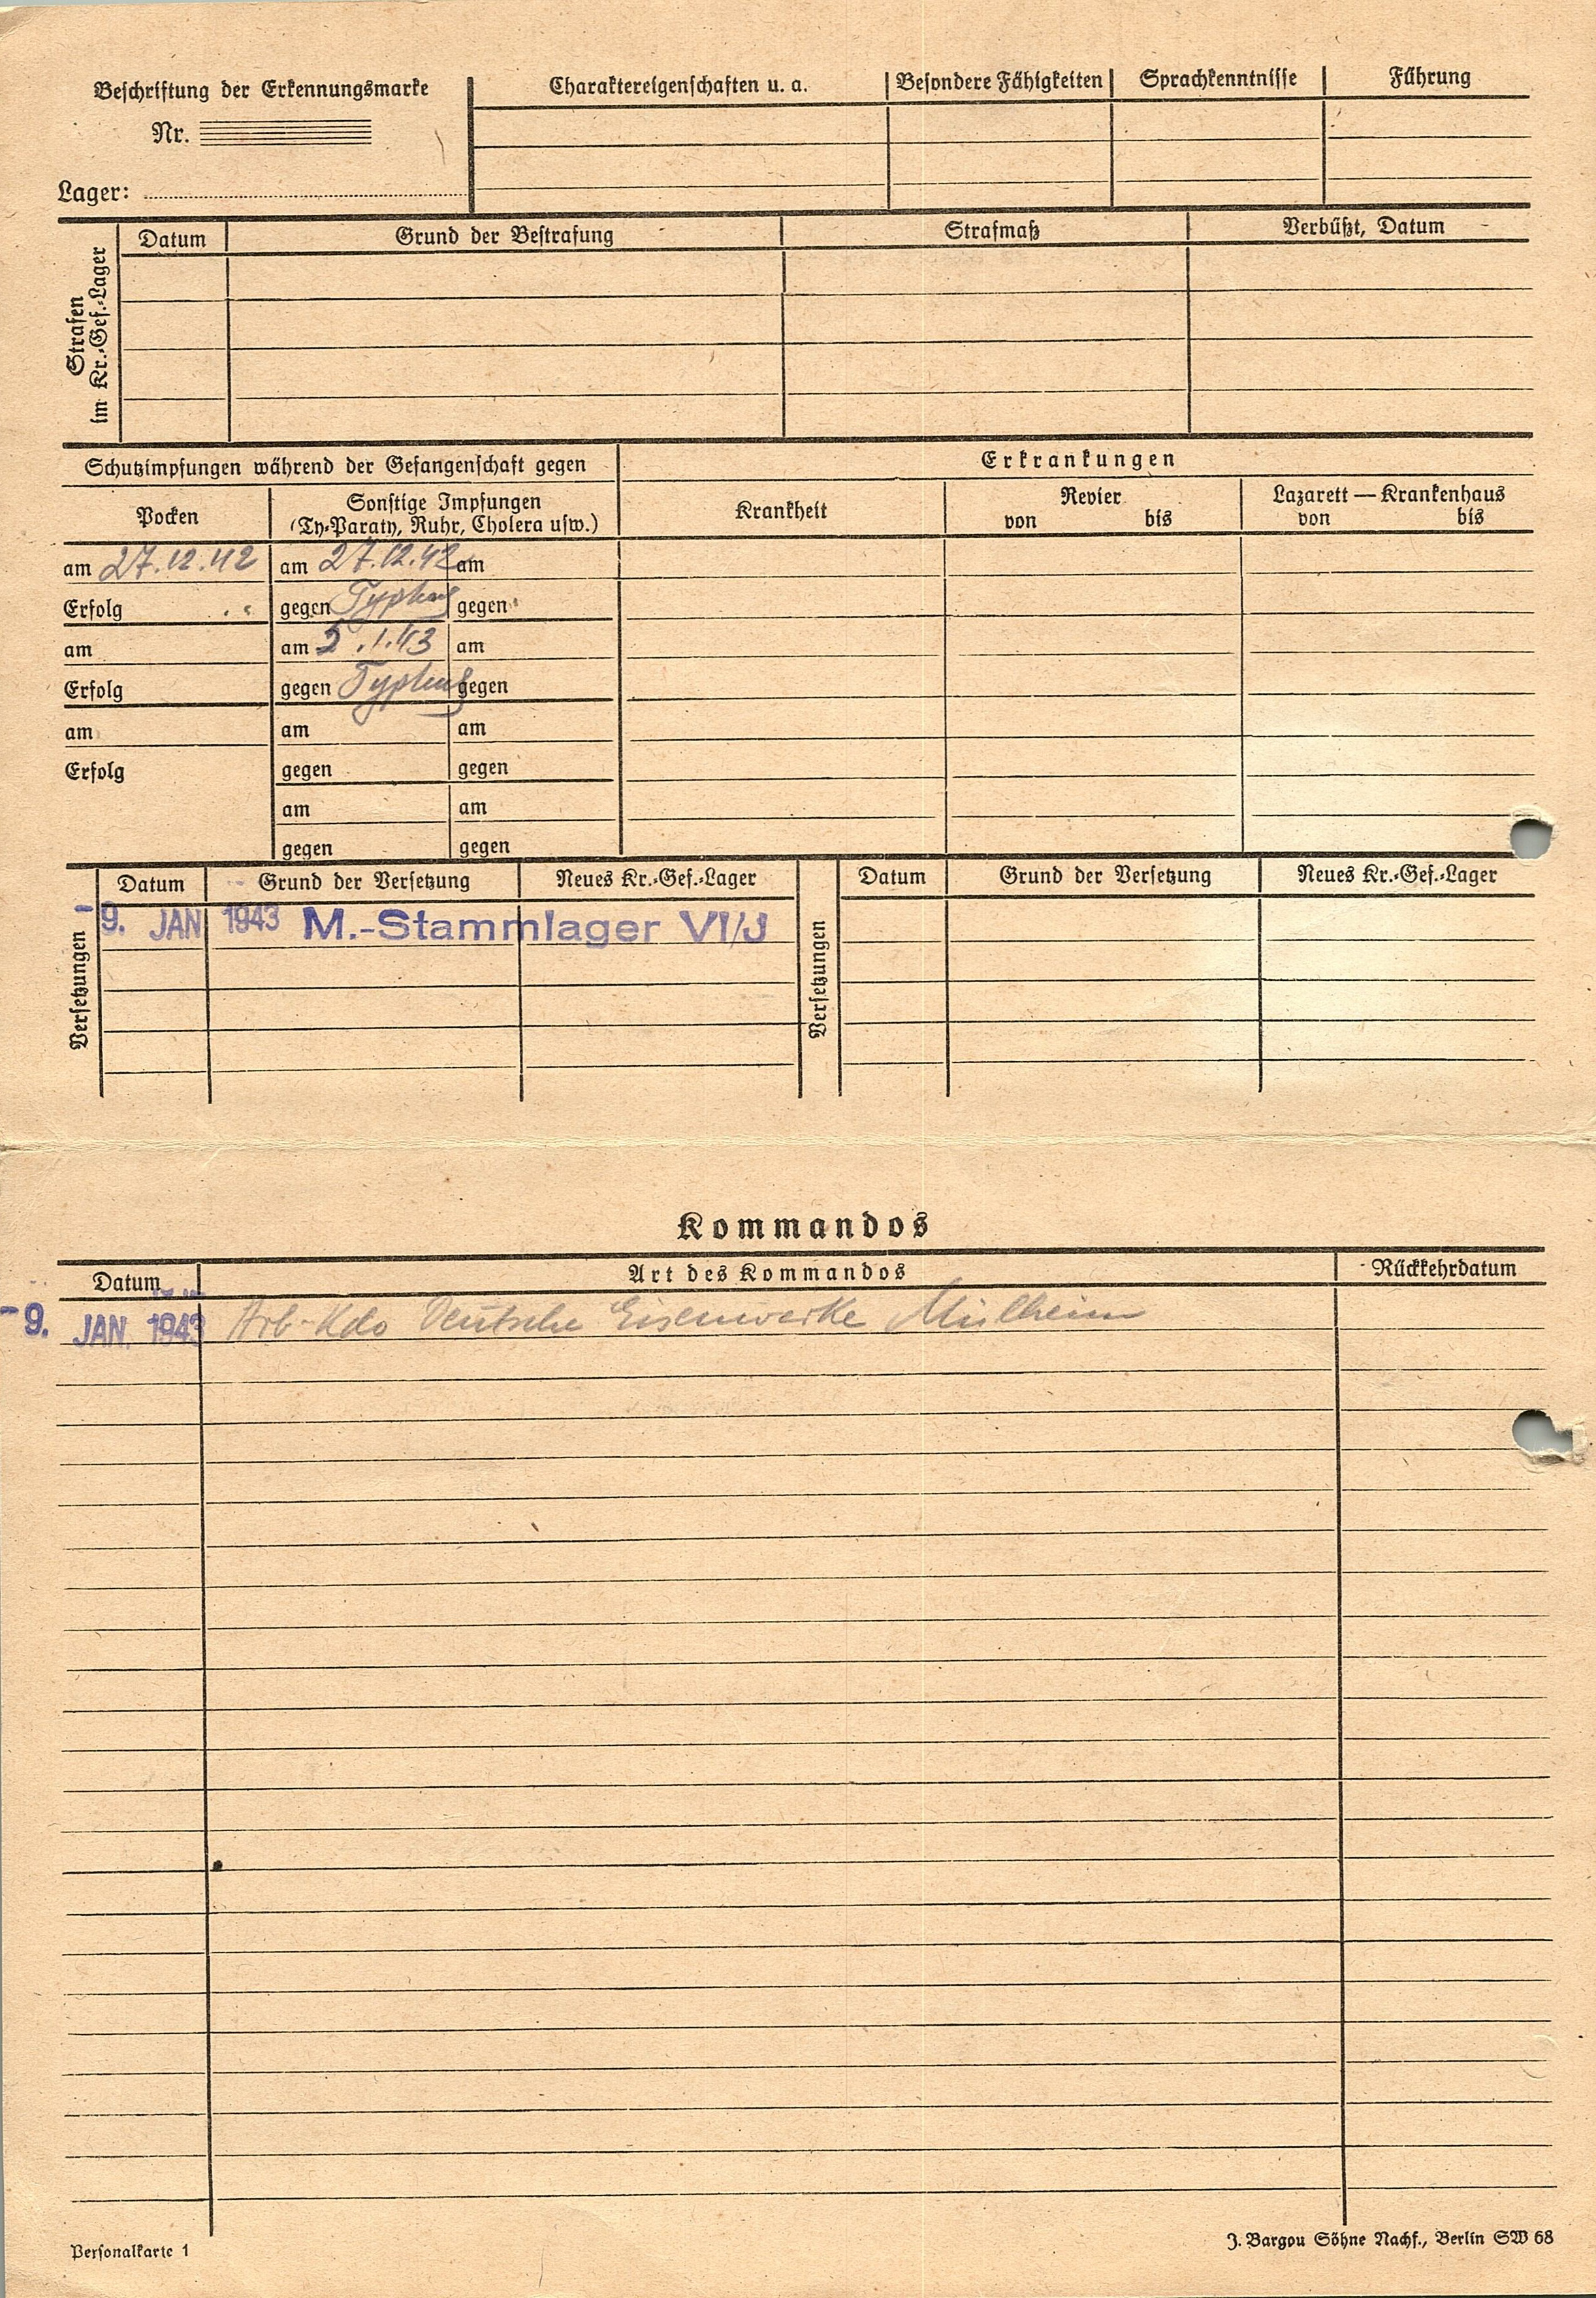 Beschriftung der Erkennungsmarke
Charaktereigenschaften u. a.
Besondere Fähigkeiten
Sprachkenntnisse
Führung
Nr.
Lager:
Strafen
im Kr.-Gef.-Lager
Datum
Grund der Bestrafung
Strafmaß
Verbüßt, Datum
Schutzimpfungen während der Gefangenschaft gegen
Erkrankungen
Pocken
Sonstige Impfungen
(Ty-Paraty, Ruhr, Cholera usw.)
Krankheit
Revier
von bis
Lazarett — Krankenhaus
von bis
am 27.12.42 am 27.12.42 am
Erfolg gegen Typhus gegen
am am 5.1.43 am
Erfolg gegen Typhus gegen
am am am
Erfolg gegen gegen
am am
gegen gegen
Versetzungen
Datum Grund der Versetzung Neues Kr.-Gef.-Lager
-9. JAN 1943 M.-Stammlager VI/J
Versetzungen
Datum Grund der Versetzung Neues Kr.-Gef.-Lager
Kommandos
Datum Art des Kommandos Rückkehrdatum
-9. JAN. 1943 Arb-Kdo Deutsche Eisenwerke Mülheim
Personalkarte 1
J. Bargou Söhne Nachf., Berlin SW 68